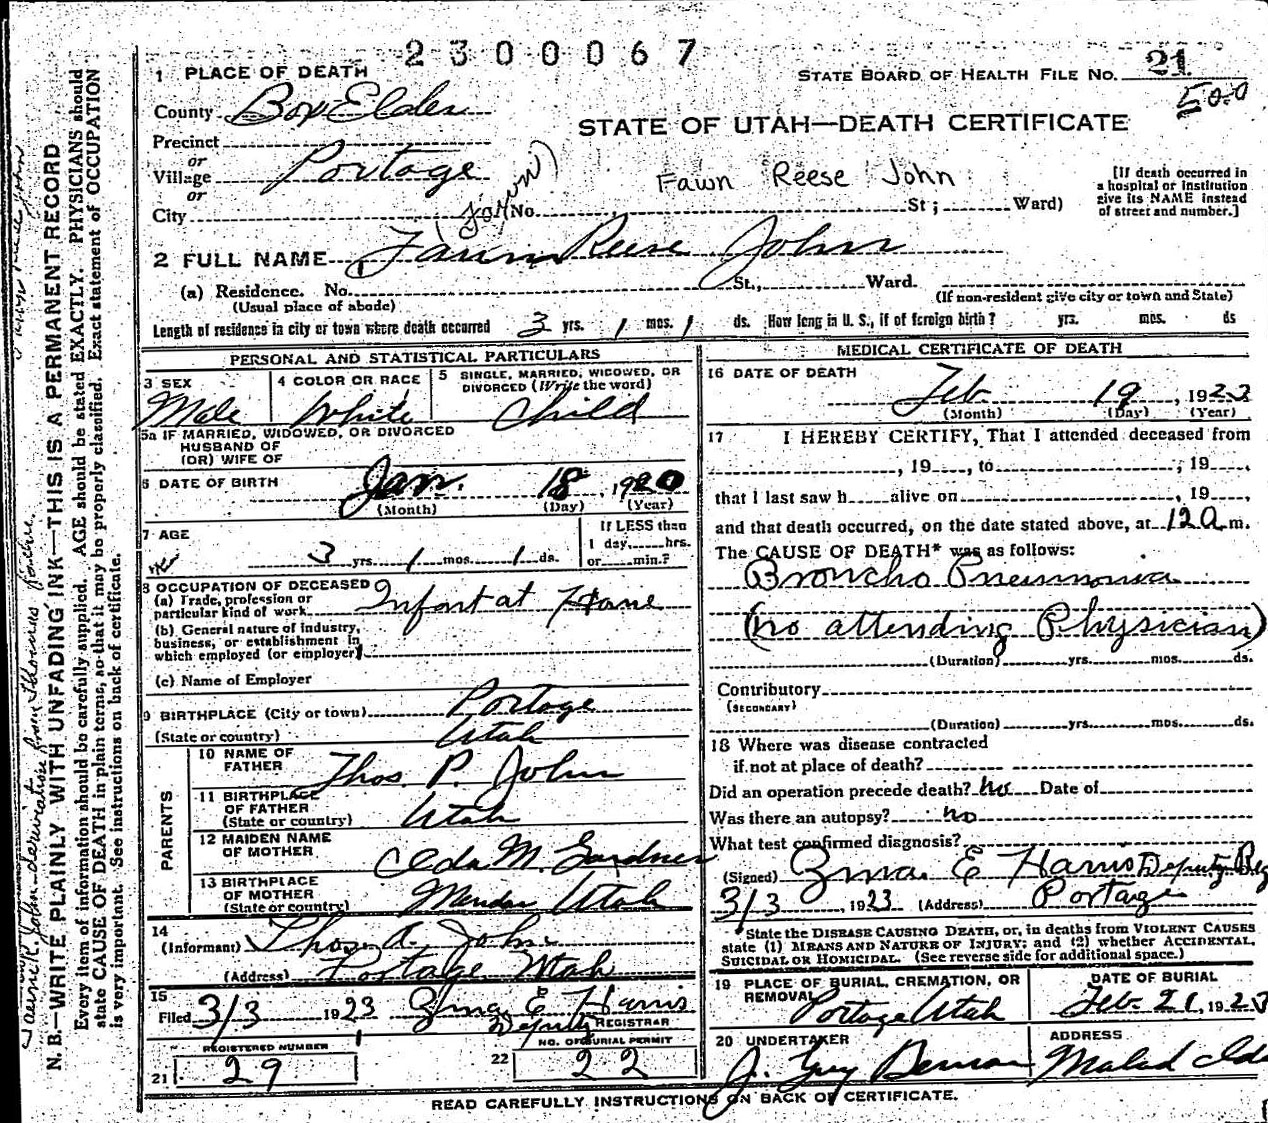 2300067
1 PLACE OF DEATH
STATE BOARD OF HEALTH FILE NO. 21
500
County Box Elder
STATE OF UTAH—DEATH CERTIFICATE
Precinct
or
Village Portage
or
City
Fawn Reese John
(Fawn)
No. St; Ward)
[If death occurred in
a hospital or institution
give its NAME instead
of street and number.]
2 FULL NAME Fawn Reese John
(a) Residence. No. St., Ward.
(Usual place of abode)
(If non-resident give city or town and State)
Length of residence in city or town where death occurred 3 yrs. 1 mos. 1 ds. How long in U. S., if of foreign birth? yrs. mos. ds
PERSONAL AND STATISTICAL PARTICULARS
3 SEX
Male
4 COLOR OR RACE
White
5 SINGLE, MARRIED, WIDOWED, OR
DIVORCED (Write the word)
Child
5a IF MARRIED, WIDOWED, OR DIVORCED
HUSBAND OF
(OR) WIFE OF
6 DATE OF BIRTH Jan. 18, 1920
(Month) (Day) (Year)
7 AGE
3 yrs. 1 mos. 1 ds.
If LESS than
1 day, hrs.
or min.?
8 OCCUPATION OF DECEASED
(a) Trade, profession or
particular kind of work Infant at Home
(b) General nature of industry,
business, or establishment in
which employed (or employer)
(c) Name of Employer
9 BIRTHPLACE (City or town) Portage
(State or country) Utah
PARENTS
10 NAME OF
FATHER Thos. P. John
11 BIRTHPLACE
OF FATHER
(State or country) Utah
12 MAIDEN NAME
OF MOTHER Ida M. Gardner
13 BIRTHPLACE
OF MOTHER
(State or country) Mendon Utah
14
(Informant) Thos. A. John
(Address) Portage Utah
15
Filed 3/3 1923 Zina E Harris
Deputy REGISTRAR
REGISTERED NUMBER
21 29
NO. OF BURIAL PERMIT
22 22
MEDICAL CERTIFICATE OF DEATH
16 DATE OF DEATH
Feb 19, 1923
(Month) (Day) (Year)
17 I HEREBY CERTIFY, That I attended deceased from
, 19 , to , 19 ,
that I last saw h alive on , 19 ,
and that death occurred, on the date stated above, at 12 a m.
The CAUSE OF DEATH* was as follows:
Broncho Pneumonia
(no attending Physician)
(Duration) yrs. mos. ds.
Contributory
(SECONDARY)
(Duration) yrs. mos. ds.
18 Where was disease contracted
if not at place of death?
Did an operation precede death? no Date of
Was there an autopsy? no
What test confirmed diagnosis?
(Signed) Zina E Harris Deputy Reg
3/3, 1923 (Address) Portage
*State the DISEASE CAUSING DEATH, or, in deaths from VIOLENT CAUSES
state (1) MEANS AND NATURE OF INJURY; and (2) whether ACCIDENTAL,
SUICIDAL OR HOMICIDAL. (See reverse side for additional space.)
19 PLACE OF BURIAL, CREMATION, OR
REMOVAL
Portage Utah
DATE OF BURIAL
Feb. 21, 1923
20 UNDERTAKER
J. Guy Benson
ADDRESS
Malad Ida
READ CAREFULLY INSTRUCTIONS ON BACK OF CERTIFICATE.
N. B.—WRITE PLAINLY WITH UNFADING INK—THIS IS A PERMANENT RECORD
Every item of information should be carefully supplied. AGE should be stated EXACTLY. PHYSICIANS should
state CAUSE OF DEATH in plain terms, so that it may be properly classified. Exact statement of OCCUPATION
is very important. See instructions on back of certificate.